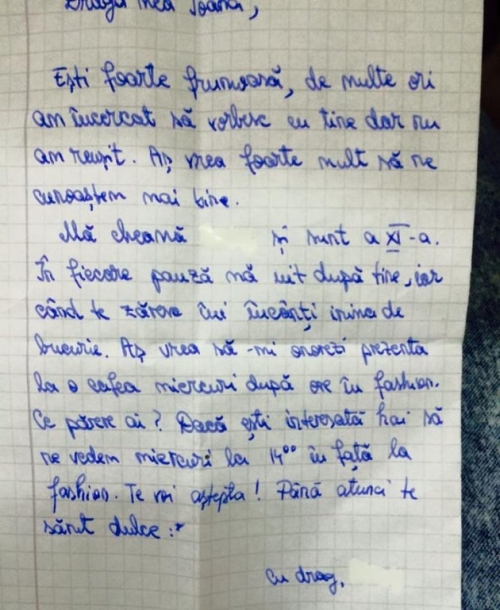 Draga mea Ioana,
Ești foarte frumoasă, de multe ori
am încercat să vorbesc cu tine dar nu
am reușit. Aș vrea foarte mult să ne
cunoaștem mai bine.
Mă cheamă și sunt a XI-a.
În fiecare pauză mă uit după tine, iar
când te zăresc îmi încânți inima de
bucurie. Aș vrea să-mi onorezi prezența
la o cafea miercuri după ore în fashion.
Ce părere ai? Dacă ești interesată hai să
ne vedem miercuri la 14⁰⁰ în față la
fashion. Te voi aștepta! Până atunci te
sărut dulce :*
Cu drag,